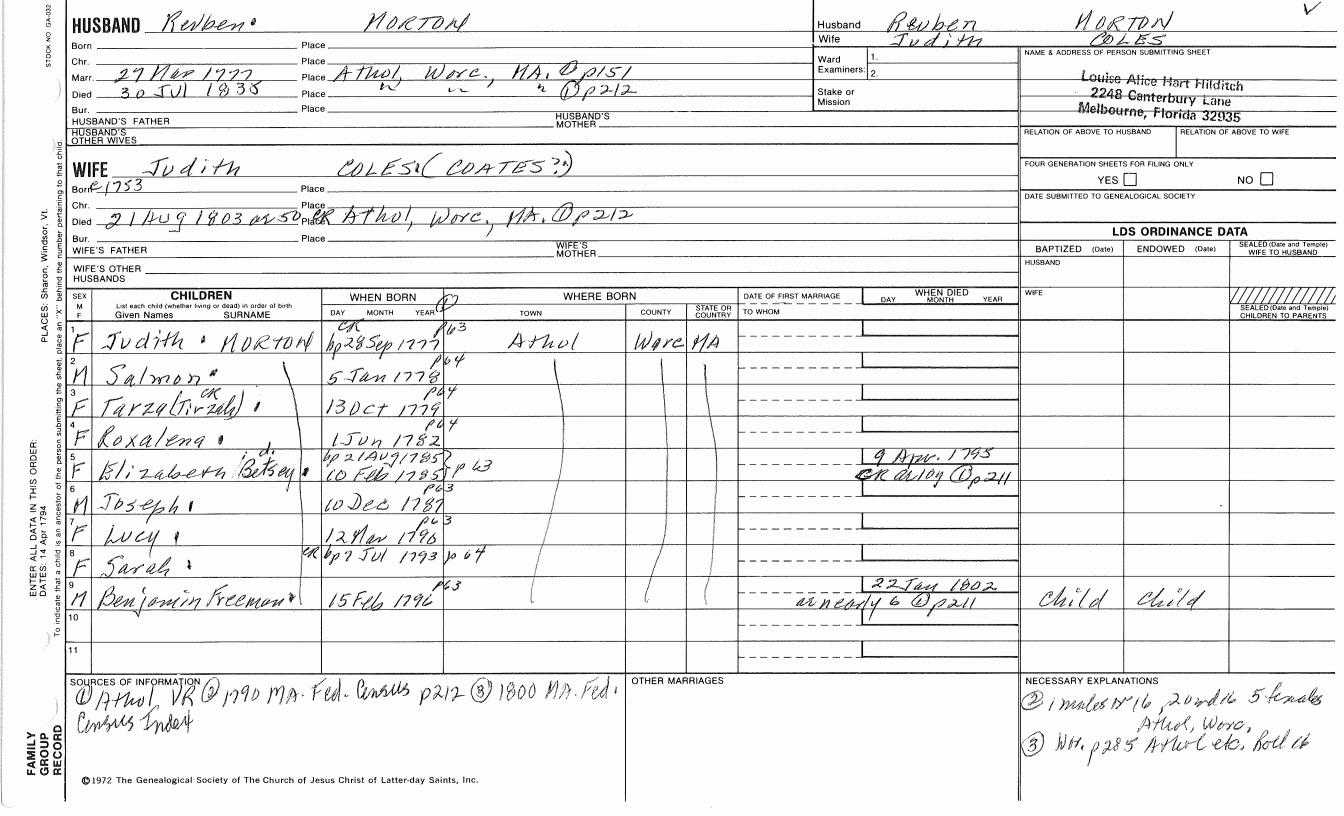 STOCK NO GA-032
HUSBAND Reuben MORTON
Born Place
Chr. Place
Marr. 27 Mar 1777 Place Athol, Worc., MA. ① p151
Died 30 Jul 1835 Place " " " ① p212
Bur. Place
HUSBAND'S FATHER HUSBAND'S MOTHER
HUSBAND'S OTHER WIVES
Husband Reuben MORTON
Wife Judith COLES
Ward Examiners: 1.
2.
Stake or Mission
NAME & ADDRESS OF PERSON SUBMITTING SHEET
Louise Alice Hart Hilditch
2248 Canterbury Lane
Melbourne, Florida 32935
RELATION OF ABOVE TO HUSBAND RELATION OF ABOVE TO WIFE
FOUR GENERATION SHEETS FOR FILING ONLY
YES NO
DATE SUBMITTED TO GENEALOGICAL SOCIETY
WIFE Judith COLES (COATES?)
Born c 1753 Place
Chr. Place
Died 21 Aug 1803 ae 50 CR Place Athol, Worc., MA. ① p212
Bur. Place
WIFE'S FATHER WIFE'S MOTHER
WIFE'S OTHER HUSBANDS
LDS ORDINANCE DATA
BAPTIZED (Date) ENDOWED (Date) SEALED (Date and Temple) WIFE TO HUSBAND
HUSBAND
WIFE
SEALED (Date and Temple) CHILDREN TO PARENTS
SEX M F
CHILDREN
List each child (whether living or dead) in order of birth
Given Names SURNAME
WHEN BORN
DAY MONTH YEAR ①
WHERE BORN
TOWN COUNTY STATE OR COUNTRY
DATE OF FIRST MARRIAGE
TO WHOM
WHEN DIED
DAY MONTH YEAR
1 F Judith MORTON CR bp 28 Sep 1777 p63 Athol Worc MA
2 M Salmon 5 Jan 1778 p64
3 F Tarza (Tirzah) CR 13 Oct 1779 p64
4 F Roxalena 1 Jun 1782 p64
5 F Elizabeth i.d. Betsey bp 21 Aug 1785 10 Feb 1785 p63 9 Apr. 1795 ① p211
6 M Joseph 10 Dec 1787 p63
7 F Lucy 12 Mar 1790 p63
8 F Sarah CR bp 7 Jul 1793 p64
9 M Benjamin Freeman 15 Feb 1796 p63 22 Jan 1802 ae nearly 6 ① p211 child child
10
11
SOURCES OF INFORMATION
① Athol VR ② 1790 MA. Fed. Census p212 ③ 1800 MA. Fed.
Census Index
OTHER MARRIAGES
NECESSARY EXPLANATIONS
② 1 males 16, 2 16 5 females
Athol, Worc,
③ p285 Athol etc. Roll 16
©1972 The Genealogical Society of The Church of Jesus Christ of Latter-day Saints, Inc.
FAMILY GROUP RECORD
ENTER ALL DATA IN THIS ORDER:
DATES: 14 Apr 1794
PLACES: Sharon, Windsor, Vt.
To indicate that a child is an ancestor of the person submitting the sheet, place an "X" behind the number pertaining to that child.